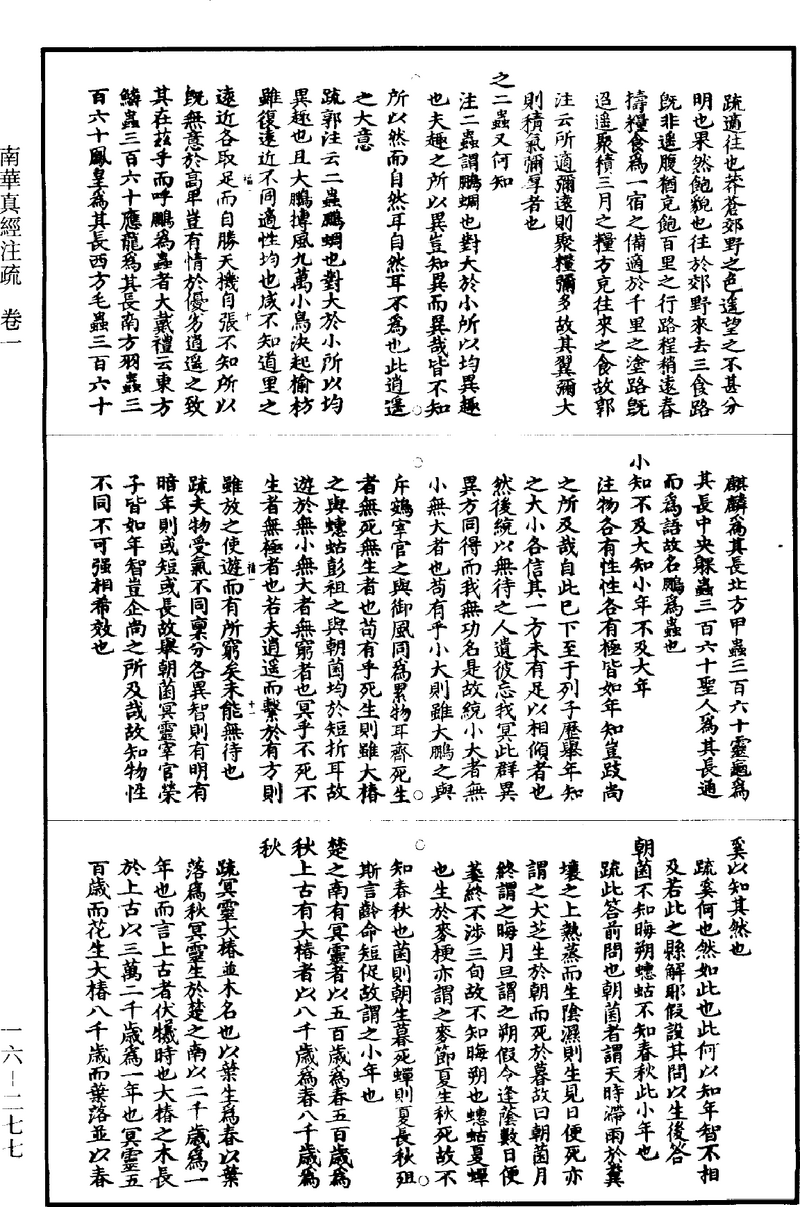 南華真經注疏　卷一
一六－二七七
疏適往也莽蒼郊野之色遥望之不甚分
明也果然飽貌也往於郊野來去三食路
旣非遥腹猶克飽百里之行路程稍遠舂
擣糧食爲一宿之備適於千里之塗路旣
迢遥聚積三月之糧方克往來之食故郭
注云所適彌遠則聚糧彌多故其翼彌大
則積氣彌厚者也
之二蟲又何知
注二蟲謂鵬蜩也對大於小所以均異趣
也夫趣之所以異豈知異而異哉皆不知
所以然而自然耳自然耳不爲也此逍遥
之大意
疏郭注云二蟲鵬蜩也對大於小所以均
異趣也且大鵬摶風九萬小鳥決起榆枋
雖復遠近不同適性均也咸不知道里之
遠近各取足而自勝天機自張不知所以
旣無意於高卑豈有情於優劣逍遥之致
其在茲乎而呼鵬爲蟲者大戴禮云東方
鱗蟲三百六十應龍爲其長南方羽蟲三
百六十鳳皇爲其長西方毛蟲三百六十
麒麟爲其長北方甲蟲三百六十靈龜爲
其長中央躶蟲三百六十聖人爲其長通
而爲語故名鵬爲蟲也
小知不及大知小年不及大年
注物各有性性各有極皆如年知豈跂尚
之所及哉自此已下至于列子歷舉年知
之大小各信其一方未有足以相傾者也
然後統以無待之人遺彼忘我冥此群異
異方同得而我無功名是故統小大者無
小無大者也苟有乎小大則雖大鵬之與
斥鷃宰官之與御風同爲累物耳齊死生
者無死無生者也苟有乎死生則雖大椿
之與蟪蛄彭祖之與朝菌均於短折耳故
遊於無小無大者無窮者也冥乎不死不
生者無極者也若夫逍遥而繫於有方則
雖放之使遊而有所窮矣未能無待也
疏夫物受氣不同稟分各異智則有明有
暗年則或短或長故舉朝菌冥靈宰官榮
子皆如年智豈企尚之所及哉故知物性
不同不可强相希效也
奚以知其然也
疏奚何也然如此也此何以知年智不相
及若此之縣解耶假設其問以生後答
朝菌不知晦朔蟪蛄不知春秋此小年也
疏此答前問也朝菌者謂天時滯雨於糞
壤之上熱蒸而生陰濕則生見日便死亦
謂之大芝生於朝而死於暮故曰朝菌月
終謂之晦月旦謂之朔假令逢陰數日便
萎終不涉三旬故不知晦朔也蟪蛄夏蟬
也生於麥梗亦謂之麥節夏生秋死故不
知春秋也菌則朝生暮死蟬則夏長秋殂
斯言齡命短促故謂之小年也
楚之南有冥靈者以五百歲爲春五百歲爲
秋上古有大椿者以八千歲爲春八千歲爲
秋
疏冥靈大椿並木名也以葉生爲春以葉
落爲秋冥靈生於楚之南以二千歲爲一
年也而言上古者伏犧時也大椿之木長
於上古以三萬二千歲爲一年也冥靈五
百歲而花生大椿八千歲而葉落並以春